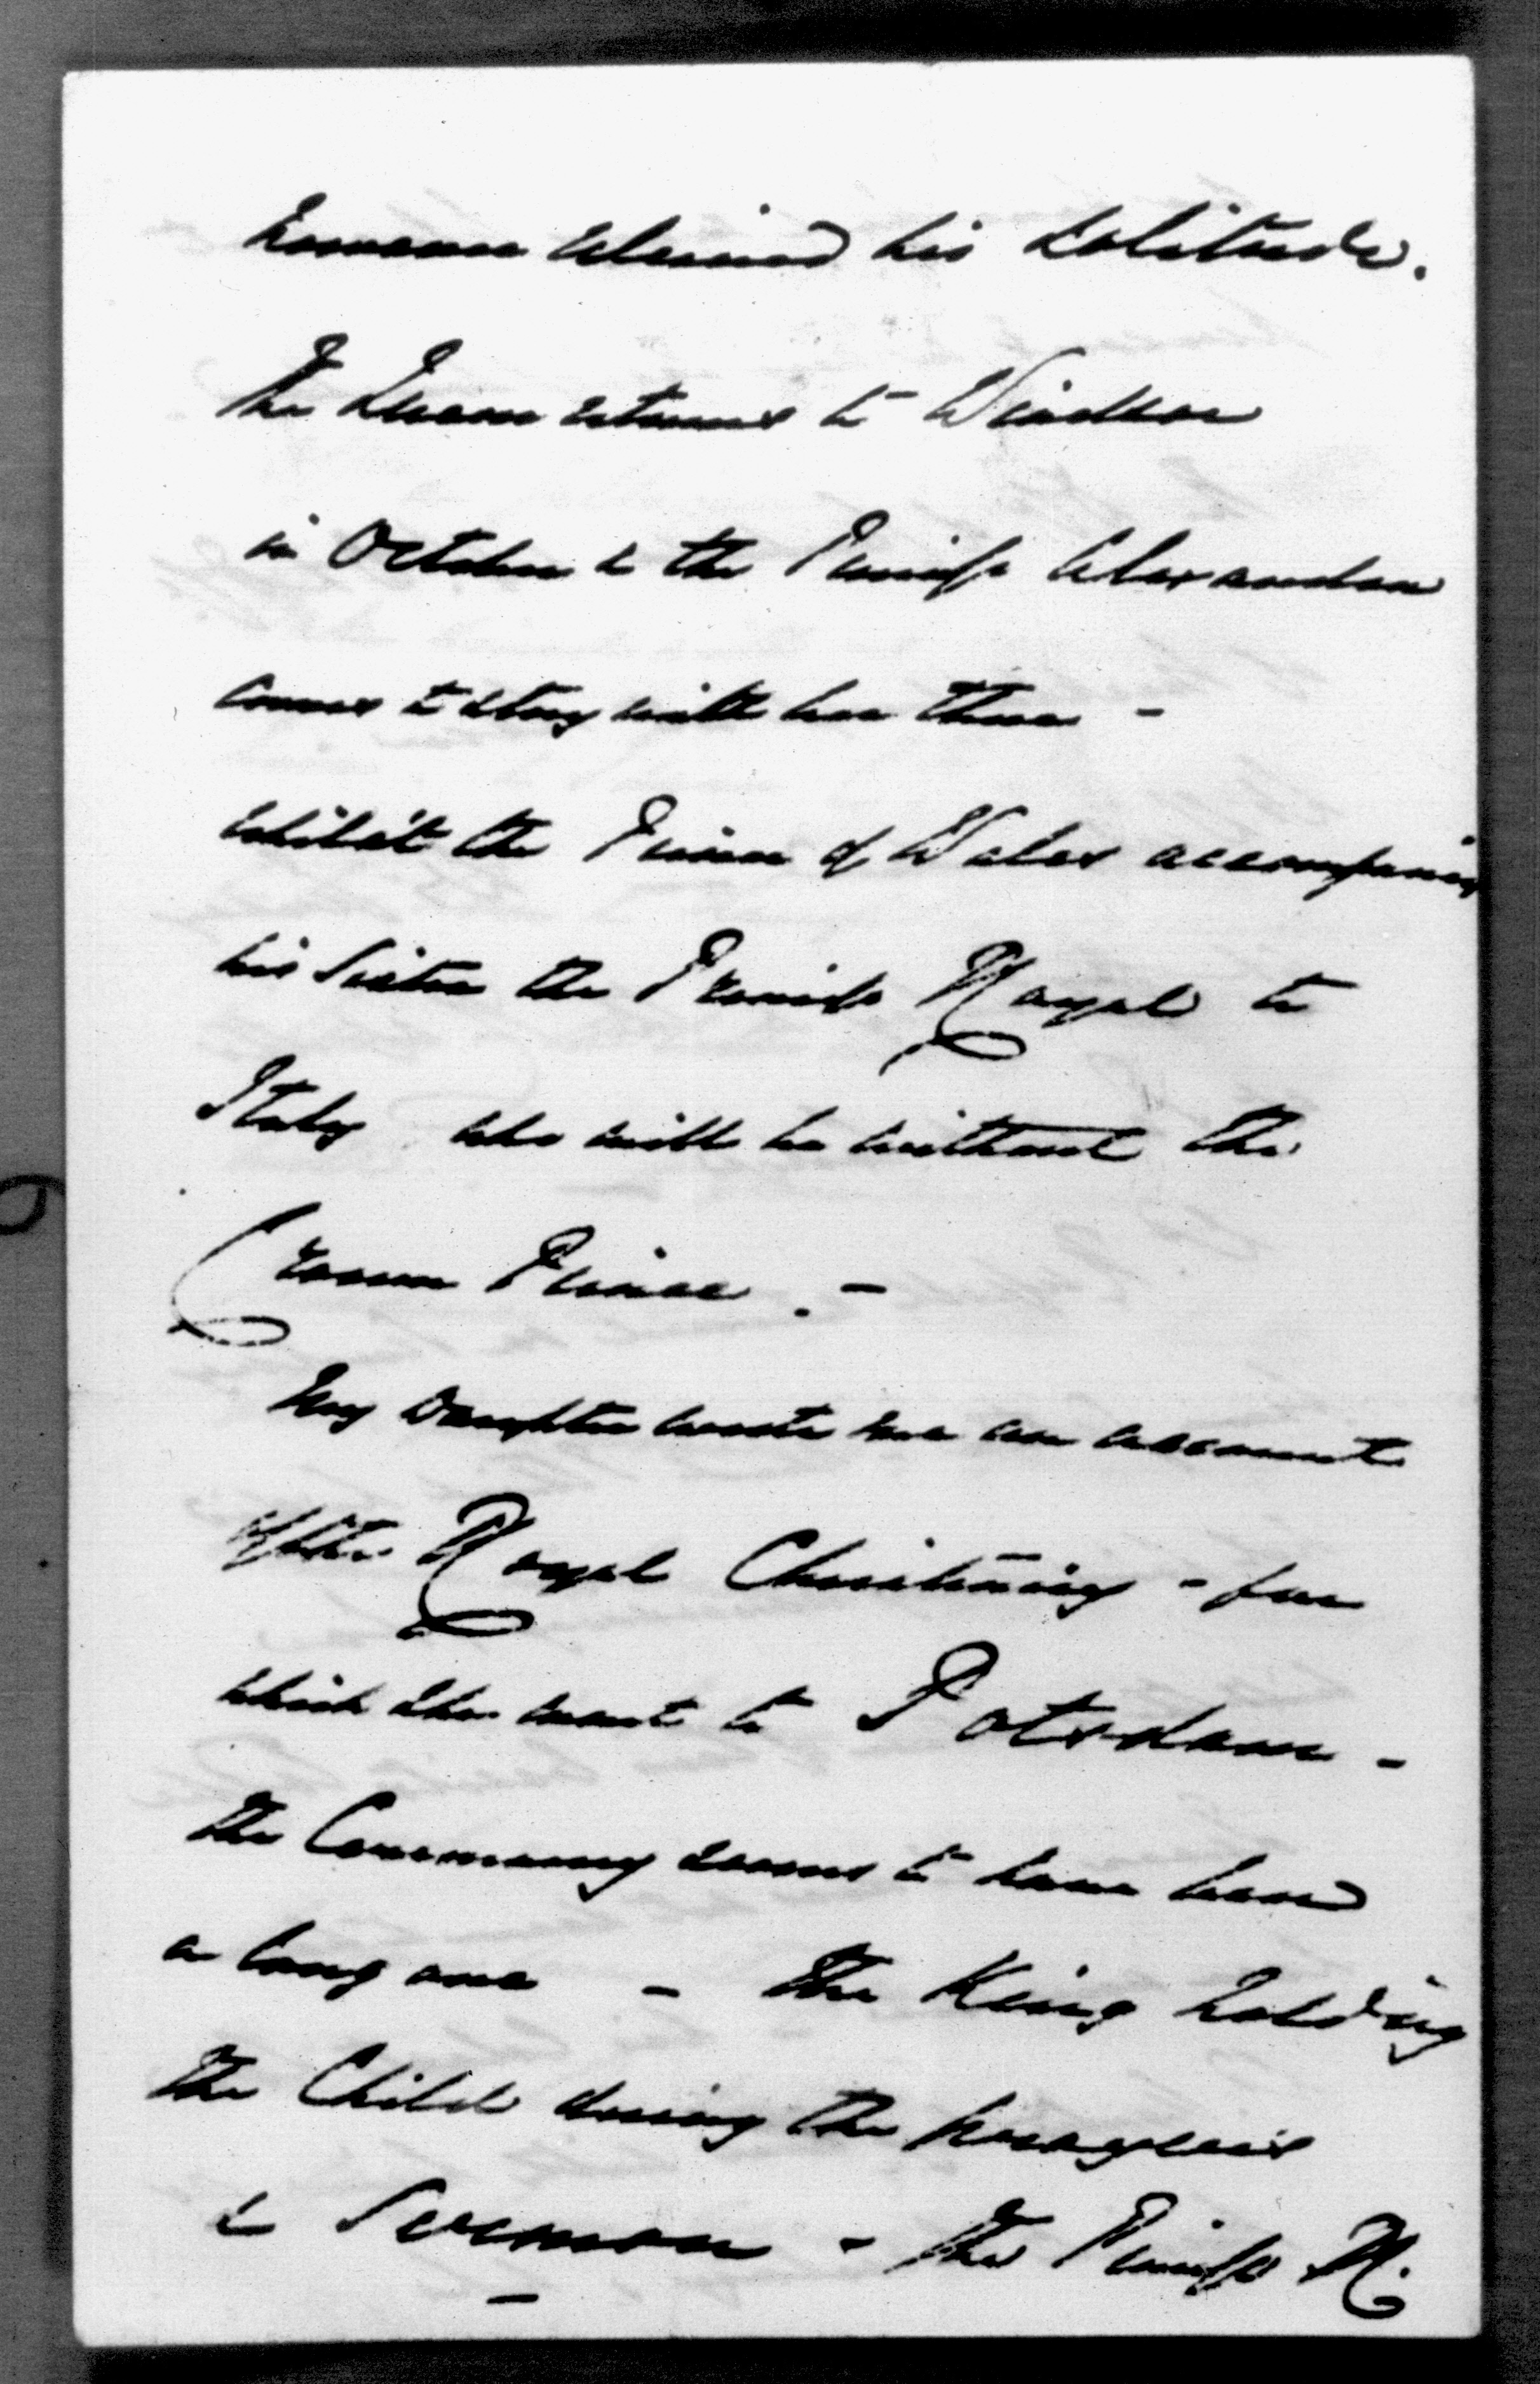 his solitude.
The Queen returns to Windsor
in October & the Princess Alexandra
comes to stay with her there -
whilst the Prince of Wales accompanies
his Sister the Princess Royal to
Italy who will be without the
Crown Prince. -
My Daughter wrote me an account
of the Royal Christening - for
which she went to Potsdam -
the Ceremony seems to have been
a long one - the King holding
the Child during the prayers
& Sermon - the Princess R.